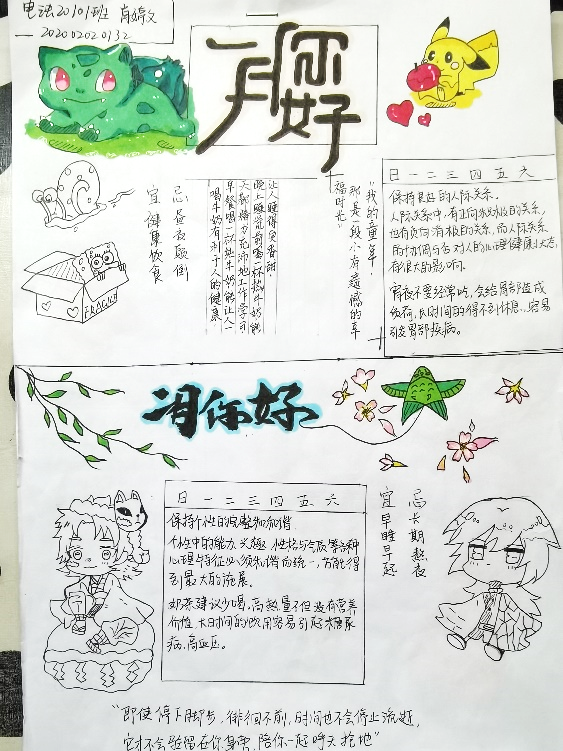 电法20101班
202002020132
一月你好
忌昼夜颠倒
宜健康饮食
让人睡得更香甜
晚上睡觉前喝一杯热牛奶能
天都精力充沛地工作学习
早餐喝一杯热牛奶能让人一
喝牛奶有利于人的健康
“我的童年
那是一段小有遗憾的幸
福时光”
日一二三四五六
保持良好的人际关系.
人际关系中,有正向积极的关系,
也有负向消极的关系,而人际关系
的协调与否对人的心理健康状态,
有很大的影响.
宵夜不要经常吃,会给胃部造成
负荷,长时间的得不到休息,容易
引发胃部疾病。
月你好
日一二三四五六
保持个性的完整和和谐.
个性中的能力、兴趣、性格与气质等各种
心理特征必须和谐而统一,方能得
到最大的施展.
奶茶建议少喝,高热量不但没有营养
价值,长时间的饮用容易引起糖尿
病,高血压。
忌长期熬夜
宜早睡早起
“即使停下脚步,徘徊不前,时间也不会停止流逝,
它才不会驻留在你身旁,陪你一起呼天抢地”